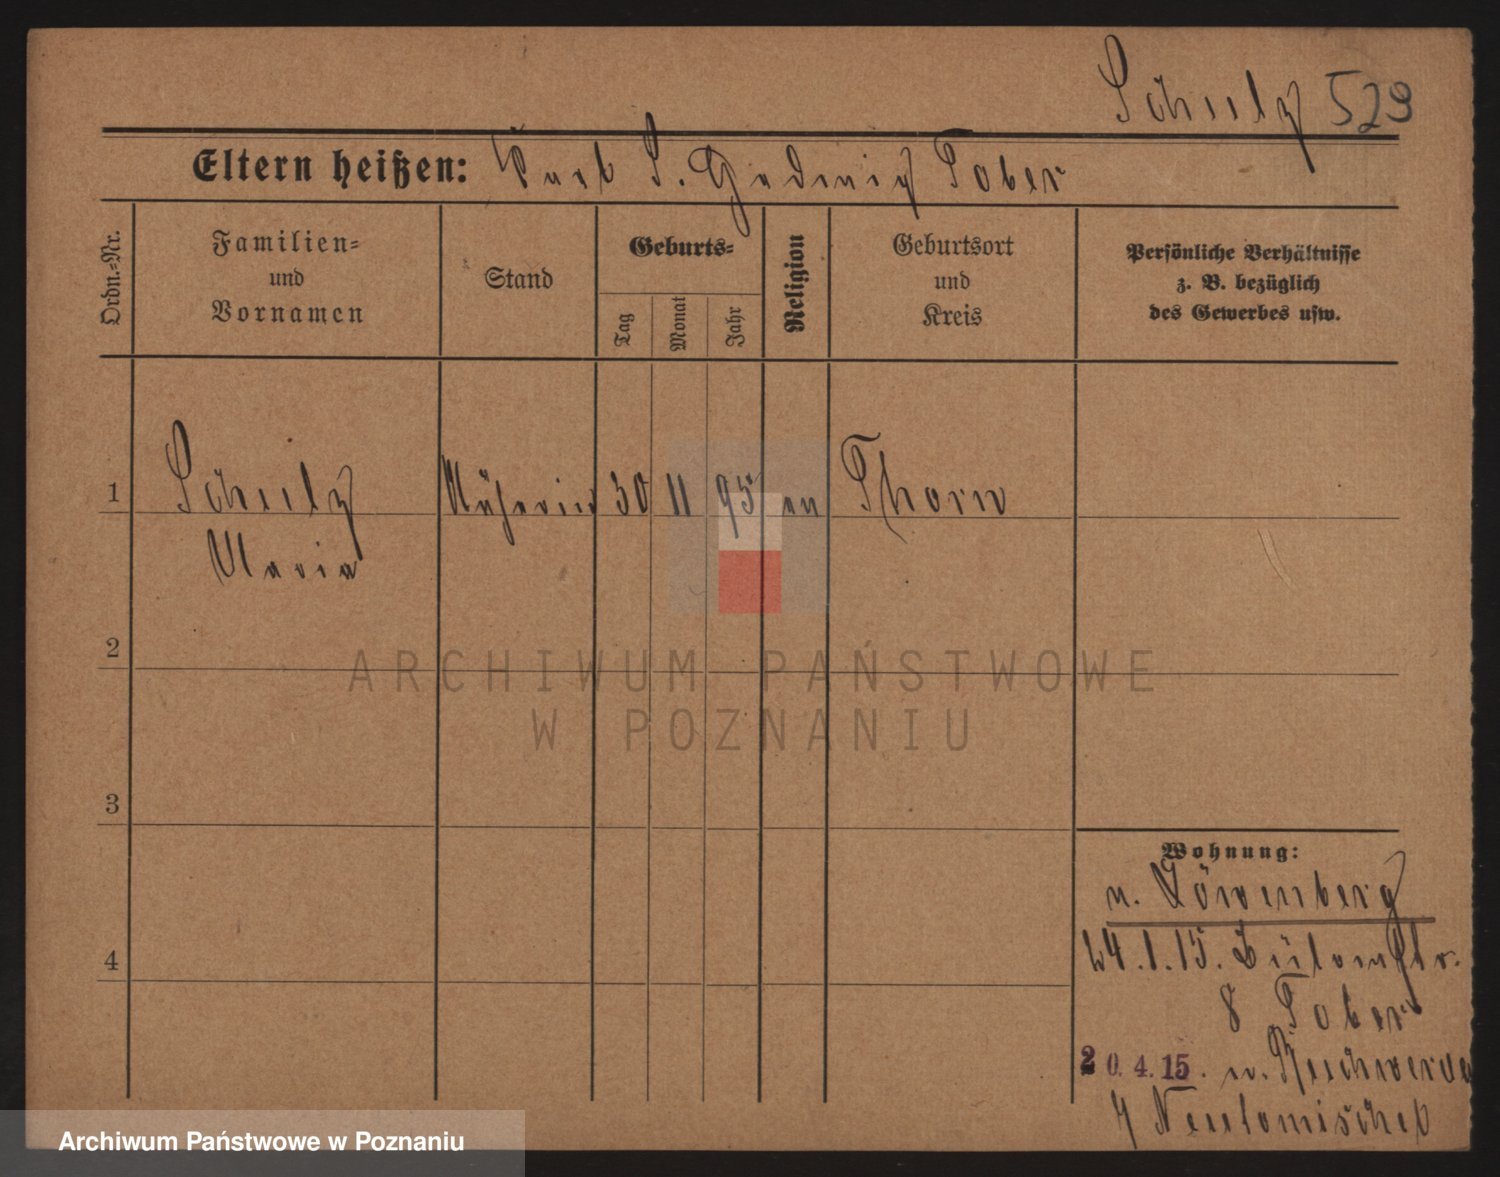 Schulz 529
Eltern heißen: Paul S. Hedwig Tober
Ordn.=Nr.
Familien=
und
Vornamen
Stand
Geburts=
Tag
Monat
Jahr
Religion
Geburtsort
und
Kreis
Persönliche Verhältnisse
z. B. bezüglich
des Gewerbes usw.
1 Schulz Näherin 30 11 95 ev Thorn
Maria
2
ARCHIWUM PAŃSTWOWE
W POZNANIU
3
4
Wohnung:
n. Löwenberg
24.1.15. Bülowstr.
8 Tober
20.4.15. n.
Neutomischel
Archiwum Państwowe w Poznaniu